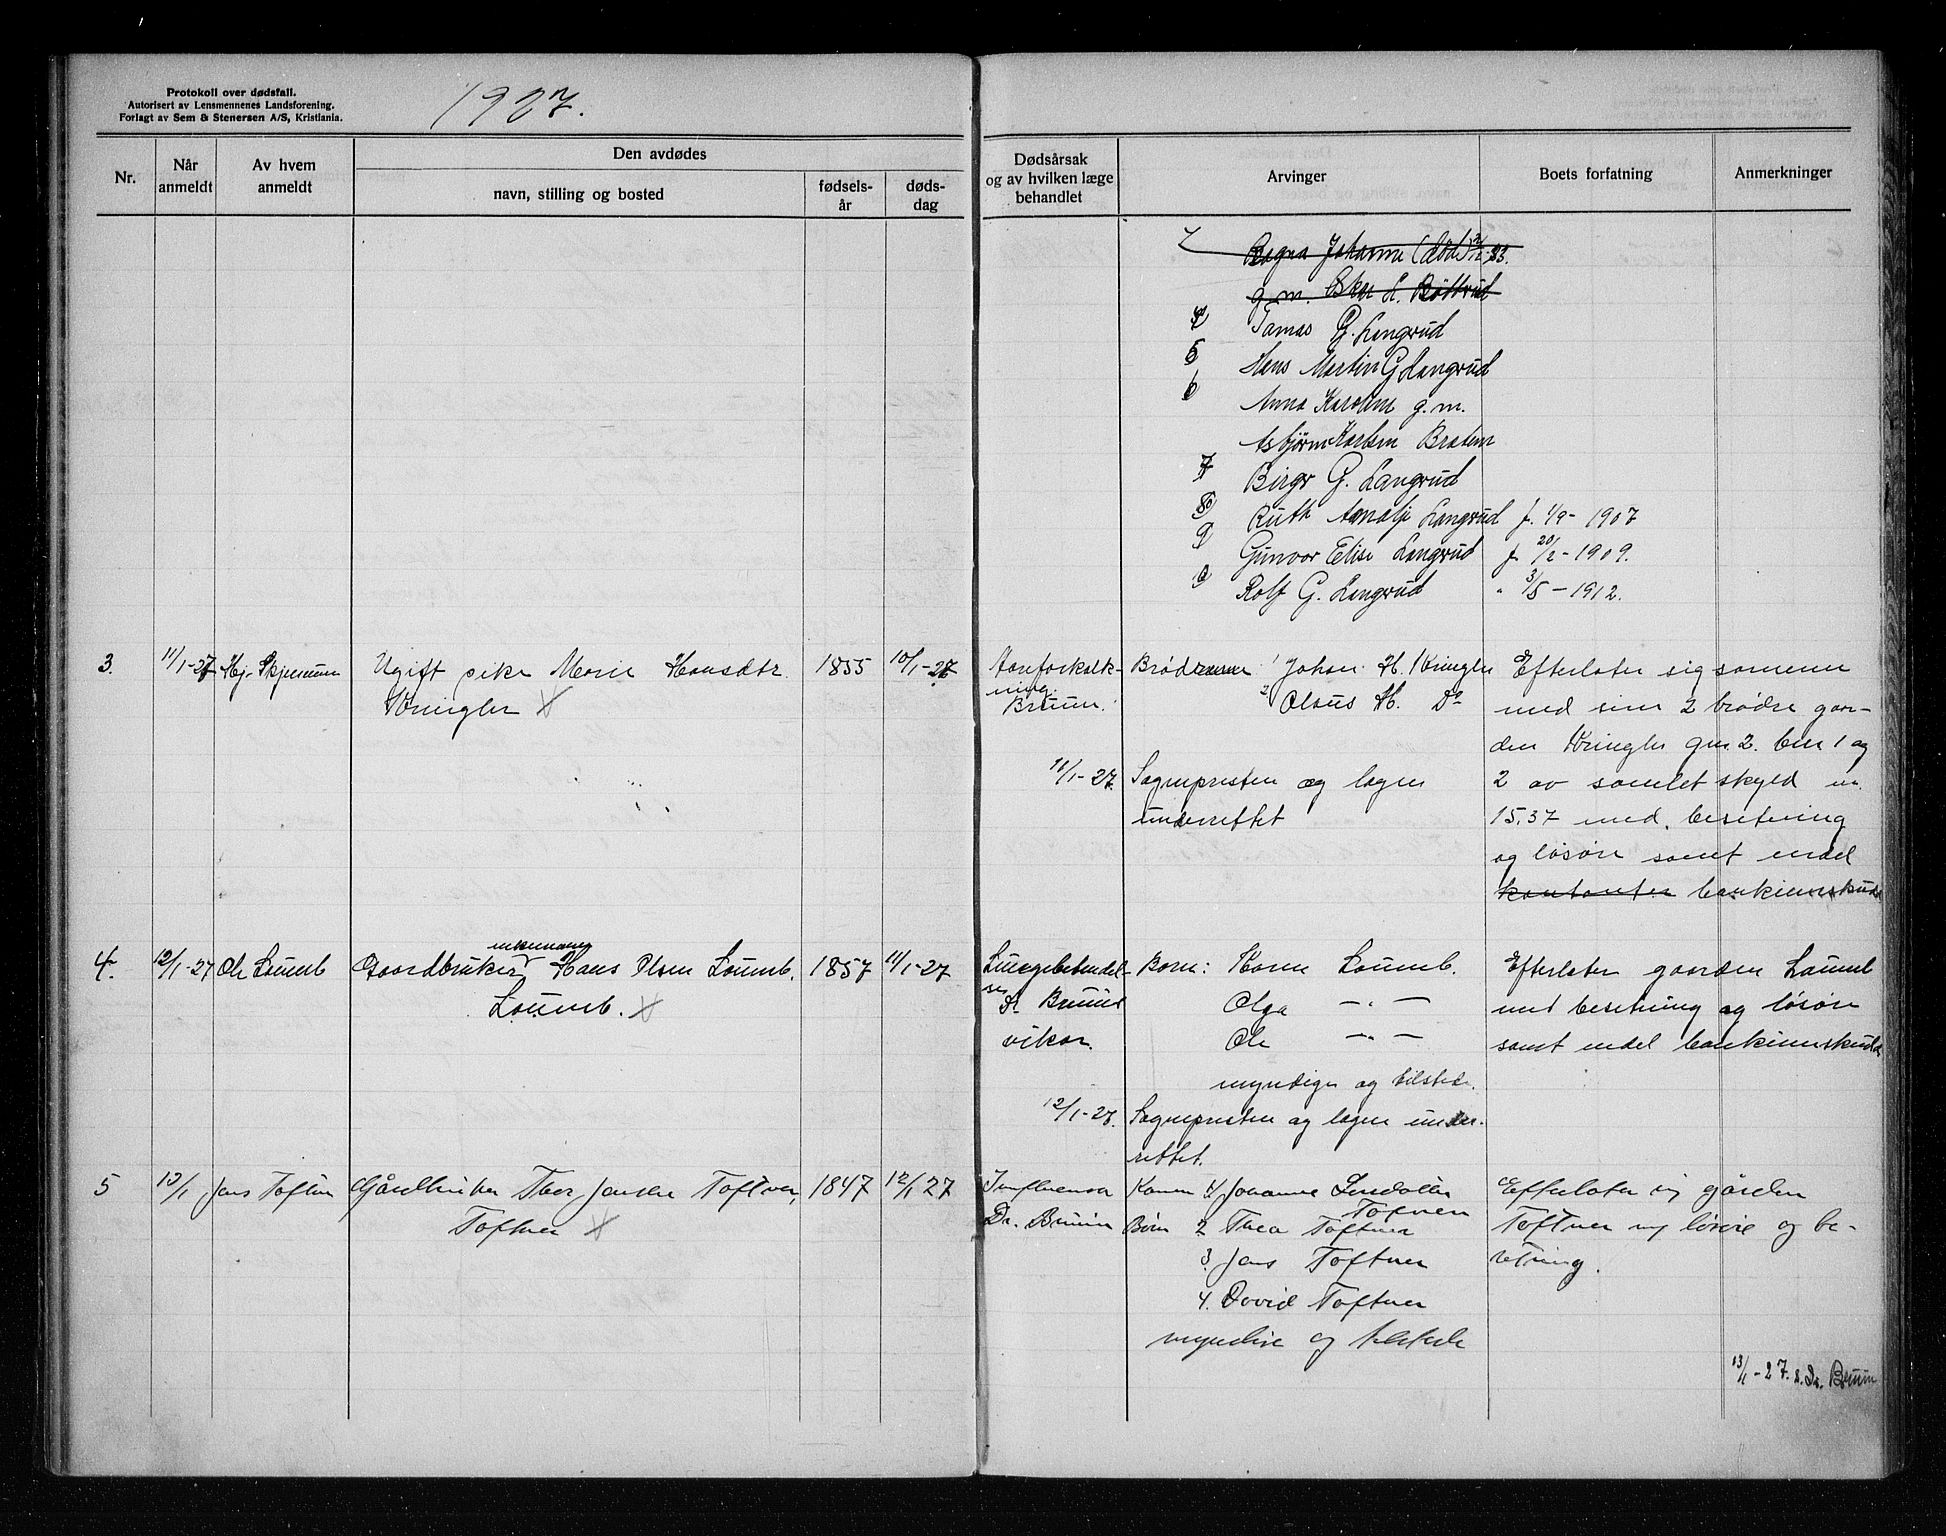 Protokoll over dødsfall.
Autorisert av Lensmennenes Landsforening.
Forlagt av Sem & Stenersen A/S, Kristiania.
1927.
Nr.
Når anmeldt
Av hvem anmeldt
Den avdødes
navn, stilling og bosted
fødsels-år
døds-dag
Dødsårsak og av hvilken læge behandlet
Arvinger
Boets forfatning
Anmerkninger
Ragna Johanne (død)
g. m. L. Bøttrud
4 G. Langrud
5 Hans Martin G Langrud
6 Anna Karoline g. m.
Asbjørn Karlsen Braten
7 Birger G. Langrud
8 Ruth Amalje Langrud f. 1/9 - 1907
9 Gunvor Elise Langrud f 20/2 - 1909.
Rolf G. Langrud " 3/5 - 1912.
3. 11/1-27 Hj. Skjennum Ugift pike Marie Hansdtr. 1855 10/1-27
Kringler X
Aareforkalk-
ning.
Bruun.
Brødrene 1 Johan H. Kringler
2 Olaus H. Do
11/1-27. Sogneprsten og lagen
underrettet
Efterlater sig sammen
med sine 2 brødre gaar-
den Kringler gnr 2. bnr 1 og
2 av samlet skyld m.
15,37 med. besetning
og løsøre samt endel
kontanter bankinnskudd
4. 12/1-27 Ole Laumb Gaardbruker enkemand Hans Olsen Laumb. 1857 11/1-27
Laumb. X
Lungebetendel-
se
Dr Bruuns
vikar.
Barn: Karen Laumb.
Olga — " —
Ole — " —
myndige og tilstede.
12/1-27. Sogneprsten og lagen under-
rettet.
Efterlater gaarden Laumb
med besetning og løsøre
samt endel bankinnskudd
5 13/1 Jens Toftner Gårdbruker Thor Jensen Toftner, 1847 12/1 27
Toftner X
Influensa
Dr. Bruun
Kone 1/ Johanne Toftner
Børn 2 Thea Toftner
3. Jens Toftner
4. David Toftner
myndige og tilstede
Efterlater sig gården
Toftner og løsøre og be-
setning.
13/1-27. s. Dr. Bruun